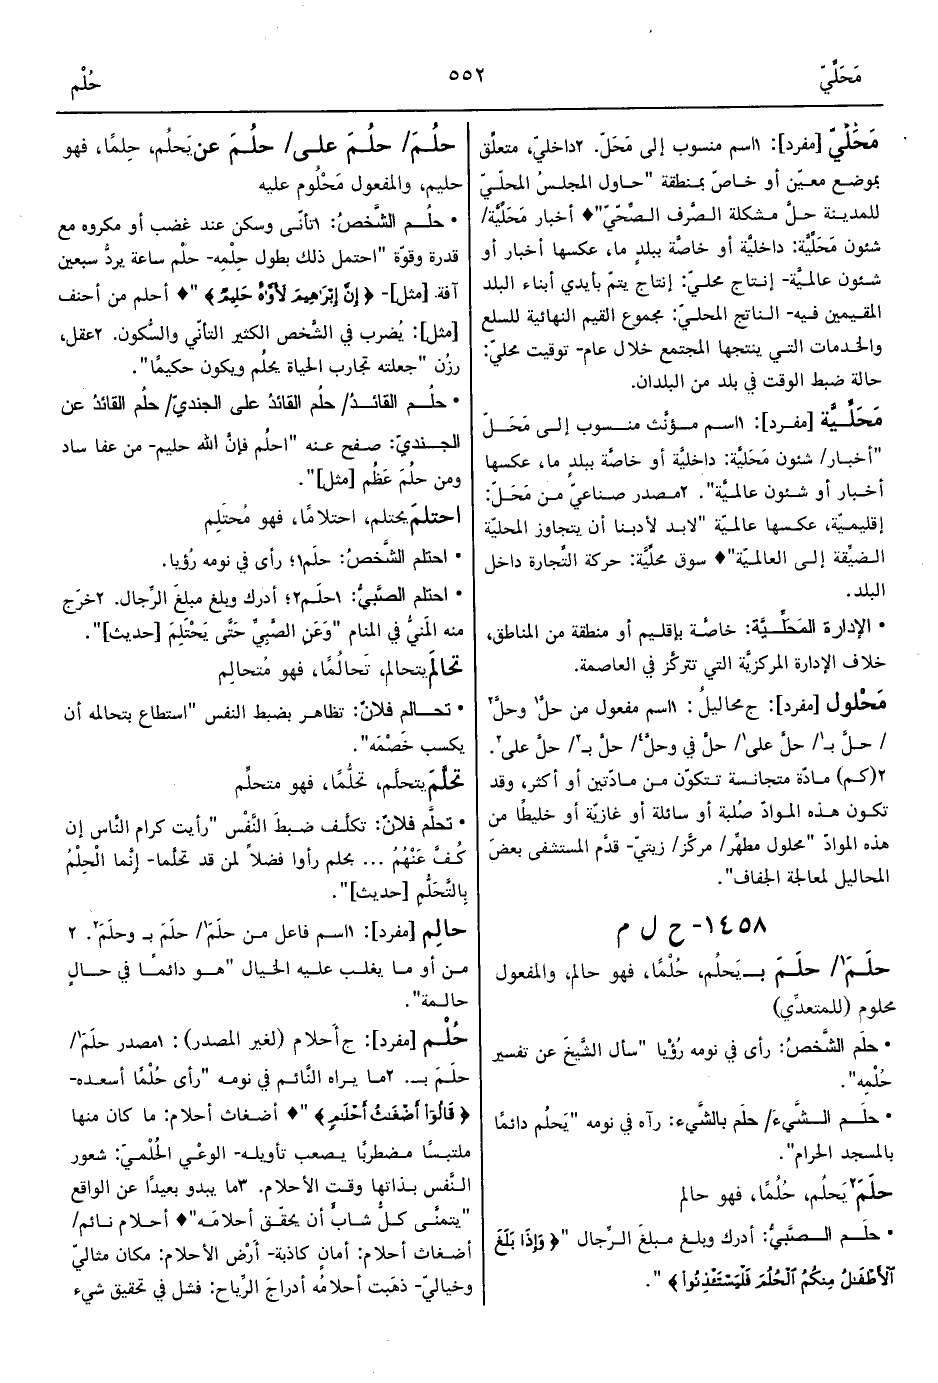 مَحَلِّيّ
٥٥٢
حُلْم
مَحَلِّيّ [مفرد]: ١اسم منسوب إلى مَحَلّ. ٢داخليّ، متعلّق
بموضع معيّن أو خاصّ بمنطقة "حاول المجلسُ المحلّيّ
للمدينة حلَّ مشكلة الصّرف الصّحّيّ"♦ أخبار مَحَليَّة/
شئون مَحَليَّة: داخليَّة أو خاصَّة ببلدٍ ما، عكسها أخبار أو
شئون عالميَّة- إنتاج محليّ: إنتاج يتمّ بأيدي أبناء البلد
المقيمين فيه- الناتج المحليّ: مجموع القيم النهائية للسلع
والخدمات التي ينتجها المجتمع خلال عام- توقيت محليّ:
حالة ضبط الوقت في بلد من البلدان.
مَحَلِّيَّة [مفرد]: ١اسم مؤنَّث منسوب إلى مَحَلّ
"أخبار/ شئون مَحَليَّة: داخليَّة أو خاصَّة ببلدٍ ما، عكسها
أخبار أو شئون عالميَّة". ٢مصدر صناعيّ من مَحَلّ:
إقليميّة، عكسها عالميَّة "لابد لأدبنا أن يتجاوز المحليَّة
الضيِّقة إلى العالميَّة"♦ سوق محلّيَّة: حركة التُّجارة داخل
البلد.
• الإدارة المَحَلِّيَّة: خاصَّة بإقليم أو منطقة من المناطق،
خلاف الإدارة المركزيَّة التي تتركَّز في العاصمة.
مَحْلول [مفرد]: ج محاليلُ: ١اسم مفعول من حلَّ١ وحلَّ٢
/ حلَّ بـ١/ حلَّ على١/ حلَّ في وحلَّ٤/ حلَّ بـ٢/ حلَّ على٢.
٢(كم) مادّة متجانسة تتكوّن من مادّتين أو أكثر، وقد
تكون هذه الموادّ صُلبة أو سائلة أو غازيّة أو خليطًا من
هذه الموادّ "محلول مطهِّر/ مركَّز/ زيتيّ- قدَّم المستشفى بعضَ
المحاليل لمعالجة الجفاف".
١٤٥٨- ح ل م
حلَمَ١/ حلَمَ بـ يَحلُم، حُلْمًا، فهو حالم، والمفعول
محلوم (للمتعدِّي)
• حلَم الشَّخصُ: رأى في نومه رُؤيا "سأل الشَّيخَ عن تفسير
حُلْمِه".
• حلَم الشَّيءَ/ حلَم بالشَّيء: رآه في نومه "يَحلُم دائمًا
بالمسجد الحرام".
حلَمَ٢ يَحلُم، حُلُمًا، فهو حالم
• حلَم الصَّبيُّ: أدرك وبلغ مبلغَ الرِّجال "﴿ وَإِذَا بَلَغَ
ٱلْأَطْفَٰلُ مِنكُمُ ٱلْحُلُمَ فَلْيَسْتَـْٔذِنُوا۟ ﴾ ".
حلُمَ/ حلُمَ على/ حلُمَ عن يَحلُم، حِلمًا، فهو
حليم، والمفعول مَحْلُوم عليه
• حلُم الشَّخصُ: ١تأنّى وسكن عند غضب أو مكروه مع
قدرة وقوَّة "احتمل ذلك بطول حِلْمِه- حلْم ساعة يردُّ سبعين
آفة. [مثل]- ﴿ إِنَّ إِبْرَٰهِيمَ لَأَوَّٰهٌ حَلِيمٌ ﴾ "♦ أحلم من أحنف
[مثل]: يُضرب في الشَّخص الكثير التأنّي والسُّكون. ٢عقل،
رزُن "جعلته تجارب الحياة يحلُم ويكون حكيمًا".
• حلُم القائدُ/ حلُم القائد على الجنديّ/ حلُم القائدُ عن
الجنديّ: صفح عنه "احلُم فإنَّ الله حليم- من عفا ساد
ومن حلُمَ عَظُم [مثل]".
احتلمَ يحتلم، احتلامًا، فهو مُحتلِم
• احتلم الشَّخصُ: حلَم١؛ رأى في نومه رُؤيا.
• احتلم الصَّبيُّ: ١حلَم٢؛ أدرك وبلغ مبلغَ الرِّجال. ٢خرَج
منه المَنيُّ في المنام "وَعَنِ الصَّبِيِّ حَتَّى يَحْتَلِمَ [حديث]".
تحالمَ يتحالم، تَحالُمًا، فهو مُتحالِم
• تحالم فلانٌ: تظاهر بضبط النفس "استطاع بتحالمه أن
يكسب خَصْمَه".
تحلَّمَ يتحلَّم، تحلُّمًا، فهو متحلِّم
• تحلَّم فلانٌ: تكلَّف ضبطَ النَّفْس "رأيت كرام النَّاس إن
كُفَّ عَنْهُمُ ... بحلم رأوا فضلاً لمن قد تحلَّما- إِنَّما الْحِلْمُ
بِالتَّحَلُّمِ [حديث]".
حالِم [مفرد]: ١اسم فاعل من حلَمَ١/ حلَمَ بـ وحلَمَ٢. ٢
من أو ما يغلب عليه الخيال "هو دائمًا في حالٍ
حالمة".
حُلْم [مفرد]: ج أحلام (لغير المصدر): ١مصدر حلَمَ١/
حلَمَ بـ. ٢ما يراه النَّائم في نومه "رأى حُلْمًا أسعده-
﴿ قَالُوٓا۟ أَضْغَٰثُ أَحْلَٰمٍ ﴾ "♦ أضغاث أحلام: ما كان منها
ملتبسًا مضطربًا يصعب تأويله- الوعْي الحُلْميّ: شعور
النَّفس بذاتها وقت الأحلام. ٣ما يبدو بعيدًا عن الواقع
"يتمنَّى كلُّ شابٍّ أن يحقِّق أحلامَه"♦ أحلام نائم/
أضغاث أحلام: أمانٍ كاذبة- أَرْض الأحلام: مكان مثاليّ
وخياليّ- ذهبَت أحلامُه أدراجَ الرِّياح: فشل في تحقيق شيء